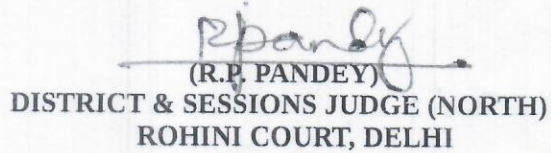 Rpandey
(R.P. PANDEY)
DISTRICT & SESSIONS JUDGE (NORTH)
ROHINI COURT, DELHI